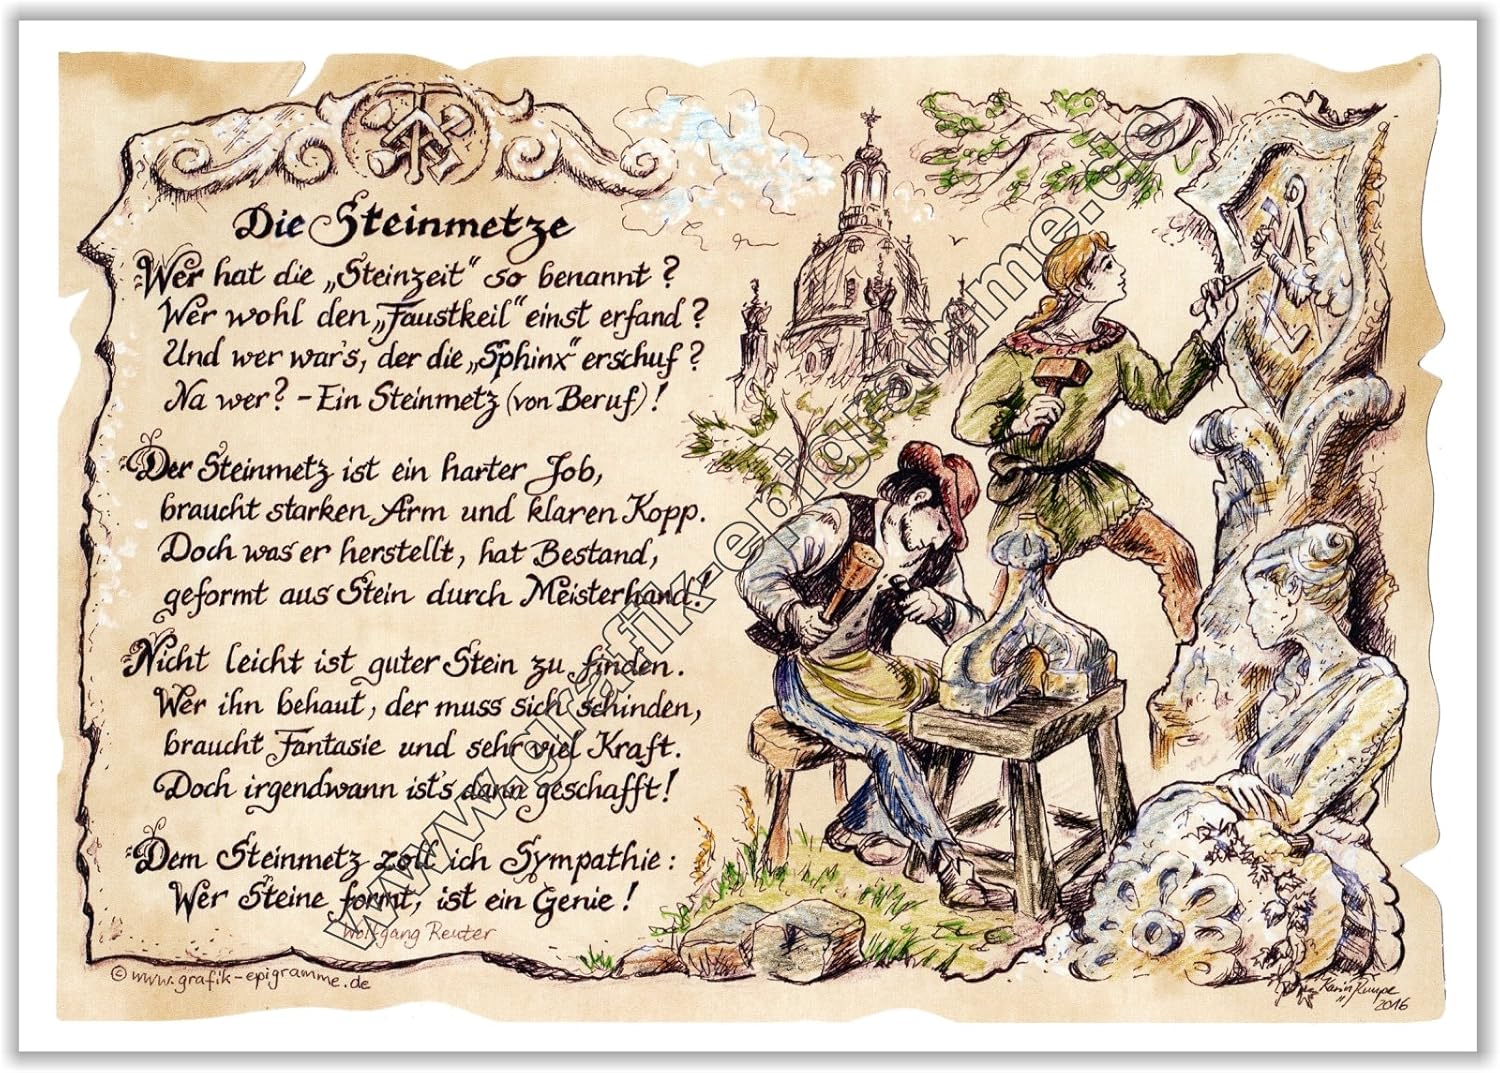 Die Steinmetze
Wer hat die „Steinzeit“ so benannt?
Wer wohl den „Faustkeil“ einst erfand?
Und wer war's, der die „Sphinx“ erschuf?
Na wer? - Ein Steinmetz (von Beruf)!
Der Steinmetz ist ein harter Job,
braucht starken Arm und klaren Kopp.
Doch was er herstellt, hat Bestand,
geformt aus Stein durch Meisterhand!
Nicht leicht ist guter Stein zu finden.
Wer ihn behaut, der muss sich schinden,
braucht Fantasie und sehr viel Kraft.
Doch irgendwann ist's dann geschafft!
Dem Steinmetz zoll ich Sympathie:
Wer Steine formt, ist ein Genie!
Wolfgang Reuter
© www.grafik-epigramme.de
www.grafik-epigramme.de
Karin Kempe
2016